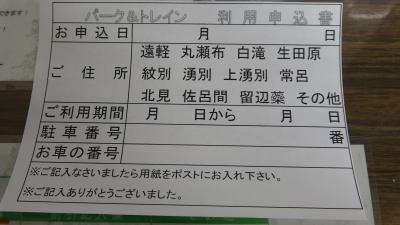 パーク&トレイン 利用申込書
お申込日 月 日
ご住所 遠軽 丸瀬布 白滝 生田原
紋別 湧別 上湧別 常呂
北見 佐呂間 留辺蘂 その他
ご利用期間 月 日から 月 日
駐車番号 番
お車の番号
※ご記入なさいましたら用紙をポストにお入れ下さい。
※ご記入ありがとうございました。